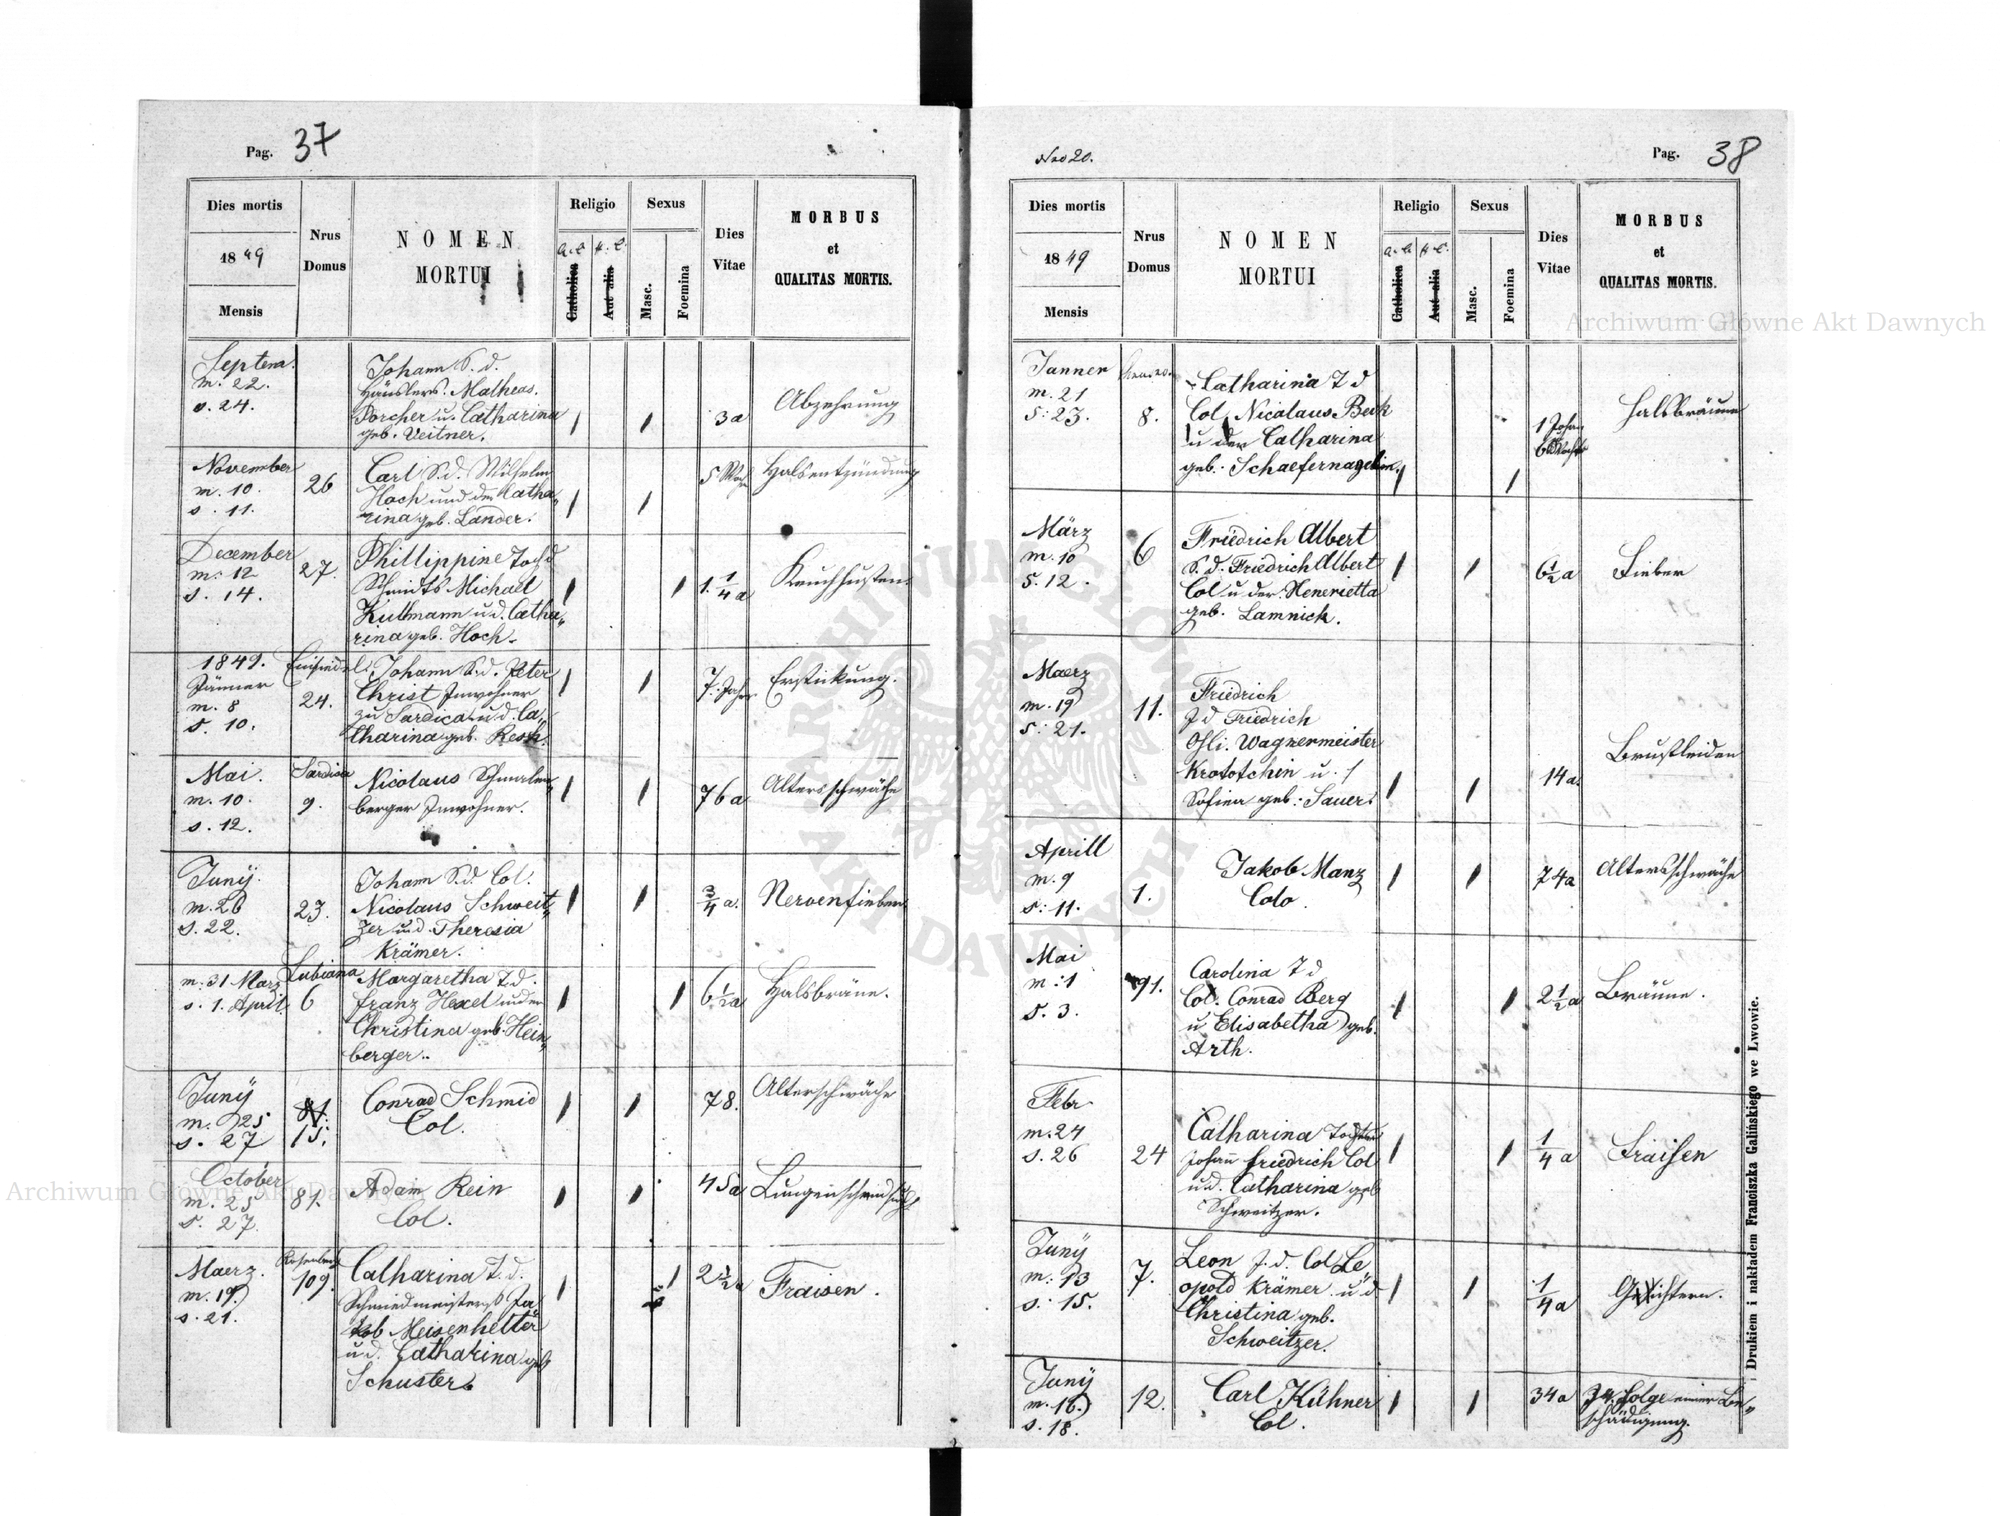 Pag. 37
Dies mortis
1849
Mensis
Nrus
Domus
NOMEN
MORTUI
Religio
a.c h.c.
Catholica
Aut alia
Sexus
Masc.
Foemina
Dies
Vitae
MORBUS
et
QUALITAS MORTIS.
Septem.
m. 22.
s. 24.
Johann S. d.
Häuslers. Matheas.
Porcher u. Catharina
geb. Veitner.
3a
Abzehrung
November
m. 10.
s. 11.
26
Carl S. d. Wilhelm
Hoch und der Catha„
rina geb. Lander.
5 Woch
Halsentzündung
December
m. 12
s. 14.
27.
Phillippine Toch d
Schmidts Michael
Kullmann u d. Catha„
rina geb. Hoch.
1. 1/4 a
Keuchhusten.
1849.
Jänner
m. 8
s. 10.
Einsiedel
24.
Johann S. d. Peter
Christ Inwohner
zu Sardica u. d. Ca„
tharina geb. Resch.
7. Jahr
Erstickung.
Mai.
m. 10.
s. 12.
Sardica
9.
Nicolaus Schmalen„
berger Inwohner.
76a
Altersschwäche
Junÿ.
m. 20
s. 22.
23.
Johann S. d. Col.
Nicolaus Schweit„
zer und Theresia
Krämer.
3/4 a.
Nervenfieber
m. 31 März
s. 1. April.
Lubiana
6
Margaretha T. d.
Franz Hexel und der
Christina geb. Hein„
berger..
6 1/2 a
Halsbräne.
Junÿ
m. 25
s. 27
15.
Conrad Schmid
Col.
78.
Alterschwäche
October
m. 25
s. 27.
81.
Adam Rein
Col.
45a
Lungenschwindsucht
Maerz.
m. 19
s. 21.
Rosenberg
109.
Catharina T. d.
Schmiedmeisters Ja„
kob Meisenhelter
u d. Catharina geb
Schuster.
2 1/2 a
Fraisen.
Nro 20.
Pag. 38
Dies mortis
1849
Mensis
Nrus
Domus
NOMEN
MORTUI
Religio
a.c h.c.
Catholica
Aut alia
Sexus
Masc.
Foemina
Dies
Vitae
MORBUS
et
QUALITAS MORTIS.
Janner
m. 21
s: 23.
8.
Catharina T d
Col Nicolaus Beck
u der Catharina
geb. Schaefernagelin.
1 Jahr
6 Woche
Halsbräune
März
m. 10
s. 12.
6
Friedrich Albert
S. d. Friedrich Albert
Col u der Henerietta
geb. Lamnick.
6 1/2 a
Fieber
Maerz
m. 19
s: 21.
11.
Friedrich
S d Friedrich
Ohli. Wagnermeister
Krototchin u.
Sofien geb: Sauer.
14a.
Brustleiden
Aprill
m. 9
s: 11.
1.
Jakob Manz
Colo.
74a
Altersschwäche
Mai
m: 1
s. 3.
91.
Carolina T d
Col. Conrad Berg
u Elisabetha geb.
Arth.
2 1/2 a
Bräune.
Febr
m. 24
s. 26
24
Catharina Tochter
Johañ Friedrich Col
u d. Catharina geb
Schweitzer.
1/4 a
Fraisen
Junÿ
m: 13
s: 15.
7.
Leon S. d. Col Le„
opold Krämer u d
Christina geb.
Schweitzer.
1/4 a
Gichtern.
Junÿ
m. 16
s. 18.
12.
Carl Kühner
Col.
34a
Folge einer Be„
schädigung.
Drukiem i nakładem Franciszka Galińskiego we Lwowie.
Archiwum Główne Akt Dawnych
Archiwum Główne Akt Dawnych
ARCHIWUM GŁÓWNE AKT DAWNYCH